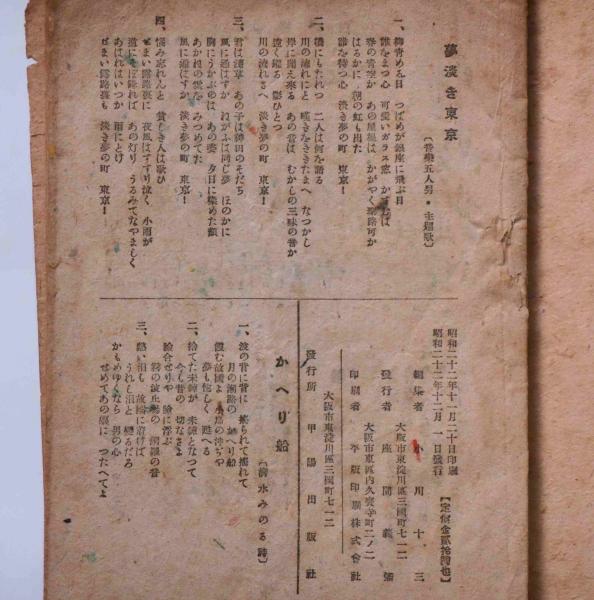 夢淡き東京
〔音樂五人男・主題歌〕
一、柳青める日　つばめが銀座に飛ぶ日
誰をまつ心　可愛いガラス窓
春の青空か　あの屋根は　かがやく聖路可か
はるかに　朝の虹も出た
誰を待つ心　淡き夢の町　東京！
二、橋にもたれつ　二人は何を語る
川の流れにも　嘆きをきゝたまへ　なつかし
岸に聞え來る　あの音は　むかしの三味の音か
遠く踊る　影ひとつ
川の流れさへ　淡き夢の町　東京！
三、君は淺草　あの子は神田のそだち
風に通はすか　ねがふは同じ夢　ほのかに
胸にうかぶのは　あの姿　夕日に染めた顔
あかねの雲を　みつめてた
風に通はすか　淡き夢の町　東京！
四、惱み忘れんと　貧しき人は歌ひ
せまい露路裏に　夜風はすすり泣く　小雨が
道にそぼ降れば　あの灯り　うるみてなやましく
あはれはいつか　雨にとけ
せまい露路裏も　淡き夢の町　東京！
昭和二十二年十一月二十日印刷
昭和二十二年十二月　一日發行
【定價金貳拾圓也】
編集者　小川十三
大阪市東淀川區三國町七一二
發行者　座間義彌
大阪市東區內久寶寺町二ノ二
印刷者　平版印刷株式會社
大阪市東淀川區三國町七一二
發行所　甲陽出版社
かへり船
〔淸水みのる詩〕
一、波の背に背に　搖られて搖れて
月の潮路の　かへり船
霞む故國よ　小島の沖ぢや
夢も佗しく　甦へる
二、捨てた未練が　未練となつて
今も昔の　切なさよ
瞼合せりや　瞼に浮ぶ
霧の波止場の　銅鑼の音
三、熱い淚も　故國に着けば
うれし淚と　變るだろ
かもめゆくなら　男の心
せめてあの娘に　つたへてよ